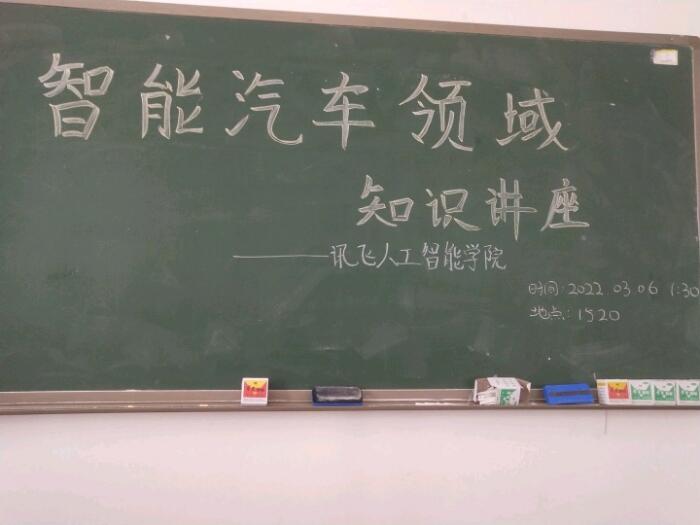 智能汽车领域
知识讲座
——讯飞人工智能学院
时间:2022.03.06 1:30
地点:1520